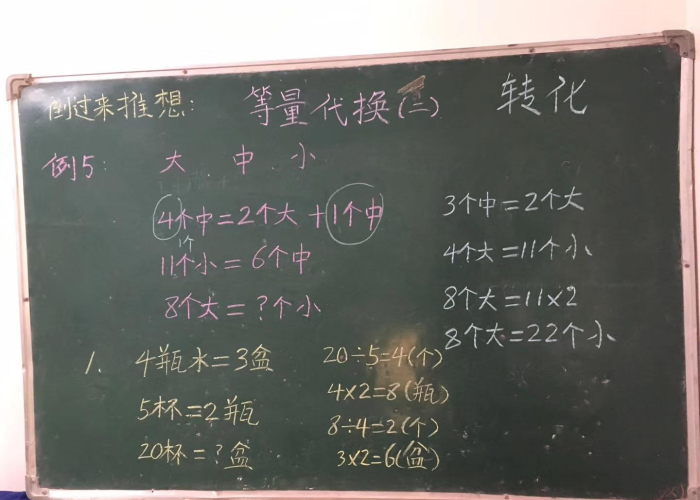 倒过来推想: 等量代换(二) 转化
例5: 大 中 小
4个中=2个大+1个中
1个
11个小=6个中
8个大=?个小
3个中=2个大
4个大=11个小
8个大=11×2
8个大=22个小
1. 4瓶水=3盆
5杯=2瓶
20杯=?盆
20÷5=4(个)
4×2=8(瓶)
8÷4=2(个)
3×2=6(盆)